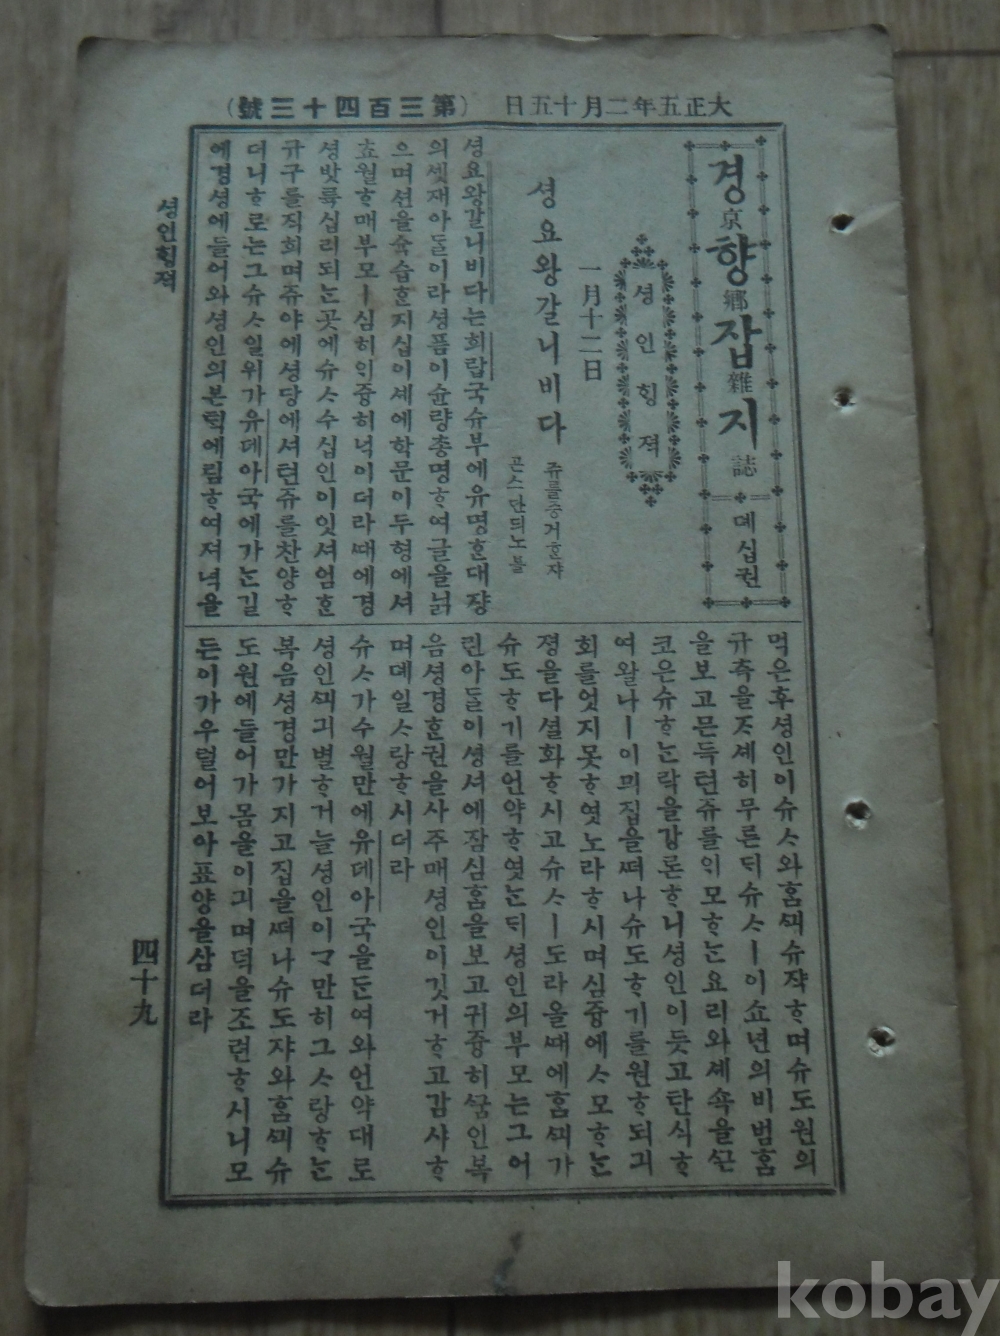 大正五年二月十五日 (第三百四十三號)
경京향鄕잡雜지誌 뎨십권
셩인ᄒᆡᆼ젹
一月十二日
셩요왕갈니비다
쥬를증거ᄒᆞᆫ쟈
곤스단듸노블
셩요왕갈니비다는희랍국슈부에유명ᄒᆞᆫ대쟝
의셋재아ᄃᆞᆯ이라셩픔이슌량총명ᄒᆞ여글을닑
으며션을ᄉᆔᆨ습ᄒᆞᆫ지십이셰에학문이두형에셔
쵸월ᄒᆞ매부모ㅣ심히ᄋᆡ즁히넉이더라ᄯᅢ에경
셩밧륙십리되ᄂᆞᆫ곳에슈ᄉᆞ수십인이잇셔엄ᄒᆞᆫ
규구를직희며쥬야에셩당에셔텬쥬를찬양ᄒᆞ
더니ᄒᆞ로는그슈ᄉᆞ일위가유데아국에가ᄂᆞᆫ길
에경셩에들어와셩인의본턱에림ᄒᆞ여져녁을
먹은후셩인이슈ᄉᆞ와홈ᄭᅴ슈쟉ᄒᆞ며슈도원의
규측을ᄌᆞ셰히무른ᄃᆡ슈ᄉᆞㅣ이쇼년의비범홈
을보고믄득텬쥬를ᄋᆡ모ᄒᆞᄂᆞᆫ요리와셰쇽을ᄭᅳᆫ
코은슈ᄒᆞᄂᆞᆫ락을강론ᄒᆞ니셩인이듯고탄식ᄒᆞ
여왈나ㅣ이믜집을ᄯᅥ나슈도ᄒᆞ기를원ᄒᆞ되긔
회를엇지못ᄒᆞ엿노라ᄒᆞ시며심즁에ᄉᆞ모ᄒᆞᄂᆞᆫ
졍을다셜화ᄒᆞ시고슈ᄉᆞㅣ도라올ᄯᅢ에홈ᄭᅴ가
슈도ᄒᆞ기를언약ᄒᆞ엿ᄂᆞᆫᄃᆡ셩인의부모는그어
린아ᄃᆞᆯ이셩셔에잠심홈을보고귀즁히ᄭᅮᆷ인복
음셩경ᄒᆞᆫ권을사주매셩인이깃거ᄒᆞ고감사ᄒᆞ
며뎨일ᄉᆞ랑ᄒᆞ시더라
슈ᄉᆞ가수월만에유데아국을ᄃᆞᆫ여와언약대로
셩인ᄭᅴ긔별ᄒᆞ거늘셩인이ᄀᆞ만히그ᄉᆞ랑ᄒᆞᄂᆞᆫ
복음셩경만가지고집을ᄯᅥ나슈도쟈와홈ᄭᅴ슈
도원에들어가몸을이긔며덕을조련ᄒᆞ시니모
든이가우럴어보아표양을삼더라
셩인ᄒᆡᆼ젹
四十九
kobay